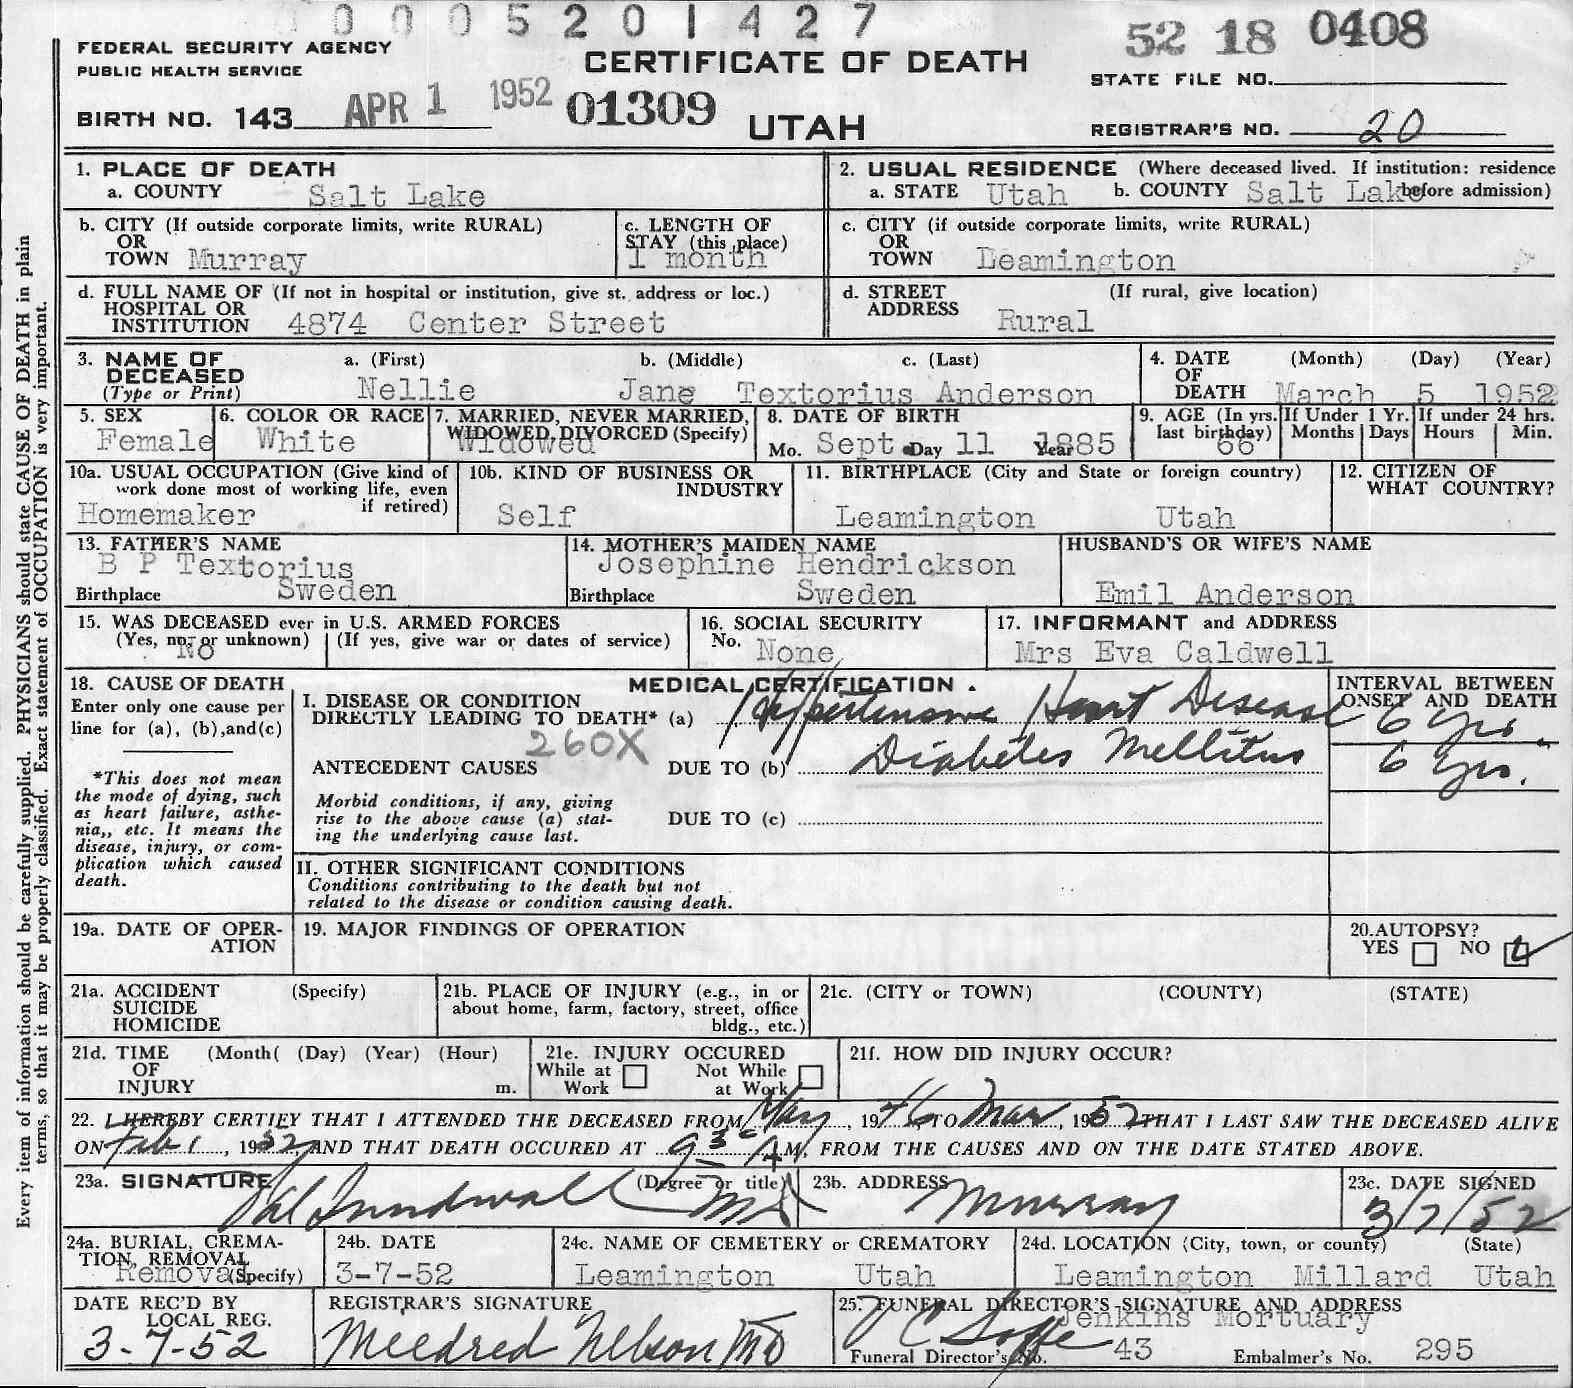 0 0 0 5 2 0 1 4 2 7
52 18 0408
FEDERAL SECURITY AGENCY
PUBLIC HEALTH SERVICE
CERTIFICATE OF DEATH
STATE FILE NO.
BIRTH NO. 143 APR 1 1952 01309
UTAH
REGISTRAR'S NO. 20
1. PLACE OF DEATH
a. COUNTY Salt Lake
2. USUAL RESIDENCE (Where deceased lived. If institution: residence before admission)
a. STATE Utah b. COUNTY Salt Lake
b. CITY (If outside corporate limits, write RURAL)
OR
TOWN Murray
c. LENGTH OF
STAY (this place)
1 month
c. CITY (if outside corporate limits, write RURAL)
OR
TOWN Leamington
d. FULL NAME OF (If not in hospital or institution, give st. address or loc.)
HOSPITAL OR
INSTITUTION 4874 Center Street
d. STREET (If rural, give location)
ADDRESS Rural
3. NAME OF a. (First) b. (Middle) c. (Last)
DECEASED
(Type or Print) Nellie Jane Textorius Anderson
4. DATE (Month) (Day) (Year)
OF
DEATH March 5 1952
5. SEX
Female
6. COLOR OR RACE
White
7. MARRIED, NEVER MARRIED,
WIDOWED, DIVORCED (Specify)
Widowed
8. DATE OF BIRTH
Mo. Sept. Day 11 Year 1885
9. AGE (In yrs.
last birthday)
66
If Under 1 Yr.
Months Days
If under 24 hrs.
Hours Min.
10a. USUAL OCCUPATION (Give kind of
work done most of working life, even
if retired)
Homemaker
10b. KIND OF BUSINESS OR
INDUSTRY
Self
11. BIRTHPLACE (City and State or foreign country)
Leamington Utah
12. CITIZEN OF
WHAT COUNTRY?
13. FATHER'S NAME
B P Textorius
Birthplace Sweden
14. MOTHER'S MAIDEN NAME
Josephine Hendrickson
Birthplace Sweden
HUSBAND'S OR WIFE'S NAME
Emil Anderson
15. WAS DECEASED ever in U.S. ARMED FORCES
(Yes, no, or unknown) (If yes, give war or dates of service)
No
16. SOCIAL SECURITY
No. None
17. INFORMANT and ADDRESS
Mrs Eva Caldwell
18. CAUSE OF DEATH
Enter only one cause per
line for (a), (b),and(c)
*This does not mean
the mode of dying, such
as heart failure, asthe-
nia,, etc. It means the
disease, injury, or com-
plication which caused
death.
MEDICAL CERTIFICATION
I. DISEASE OR CONDITION
DIRECTLY LEADING TO DEATH* (a) Hypertensive Heart Disease
260X
ANTECEDENT CAUSES DUE TO (b) Diabetes Mellitus
Morbid conditions, if any, giving
rise to the above cause (a) stat-
ing the underlying cause last.
DUE TO (c)
INTERVAL BETWEEN
ONSET AND DEATH
6 yrs.
6 yrs.
II. OTHER SIGNIFICANT CONDITIONS
Conditions contributing to the death but not
related to the disease or condition causing death.
19a. DATE OF OPER-
ATION
19. MAJOR FINDINGS OF OPERATION
20.AUTOPSY?
YES NO
21a. ACCIDENT (Specify)
SUICIDE
HOMICIDE
21b. PLACE OF INJURY (e.g., in or
about home, farm, factory, street, office
bldg., etc.)
21c. (CITY or TOWN) (COUNTY) (STATE)
21d. TIME (Month( (Day) (Year) (Hour)
OF
INJURY m.
21e. INJURY OCCURED
While at Work Not While at Work
21f. HOW DID INJURY OCCUR?
22. I HEREBY CERTIFY THAT I ATTENDED THE DECEASED FROM May, 1946 TO Mar, 1952 THAT I LAST SAW THE DECEASED ALIVE
ON Feb 1, 1952, AND THAT DEATH OCCURED AT 9 30 A M. FROM THE CAUSES AND ON THE DATE STATED ABOVE.
23a. SIGNATURE (Degree or title)
Val Sundwall MD
23b. ADDRESS
Murray
23c. DATE SIGNED
3/7/52
24a. BURIAL, CREMA-
TION, REMOVAL
Removal (Specify)
24b. DATE
3-7-52
24c. NAME OF CEMETERY or CREMATORY
Leamington Utah
24d. LOCATION (City, town, or county) (State)
Leamington Millard Utah
DATE REC'D BY
LOCAL REG.
3-7-52
REGISTRAR'S SIGNATURE
Mildred Nelson MD
25. FUNERAL DIRECTOR'S SIGNATURE AND ADDRESS
Jenkins Mortuary
Funeral Director's No. 43 Embalmer's No. 295
Every item of information should be carefully supplied. PHYSICIANS should state CAUSE OF DEATH in plain
terms, so that it may be properly classified. Exact statement of OCCUPATION is very important.